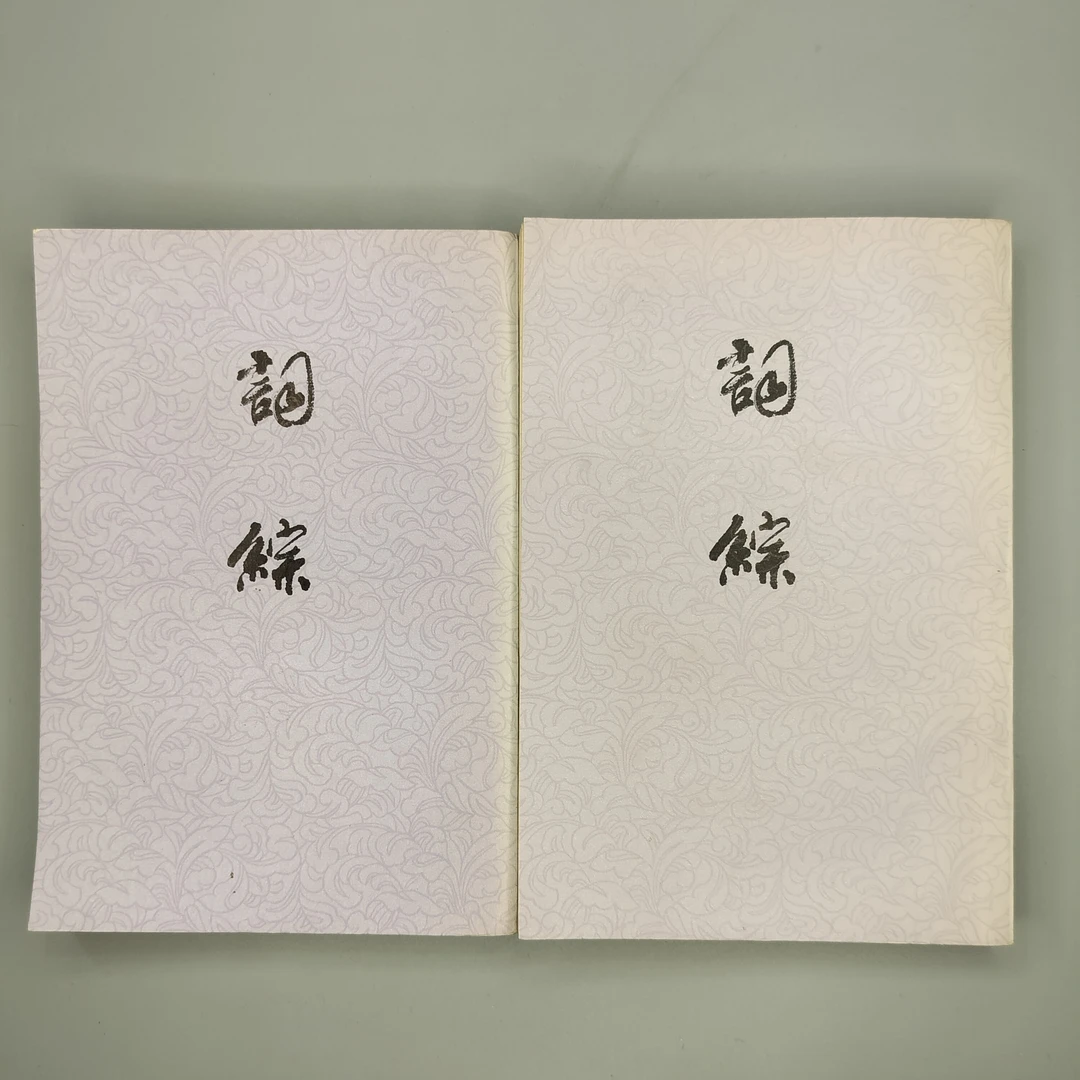 詞
綜
詞
綜